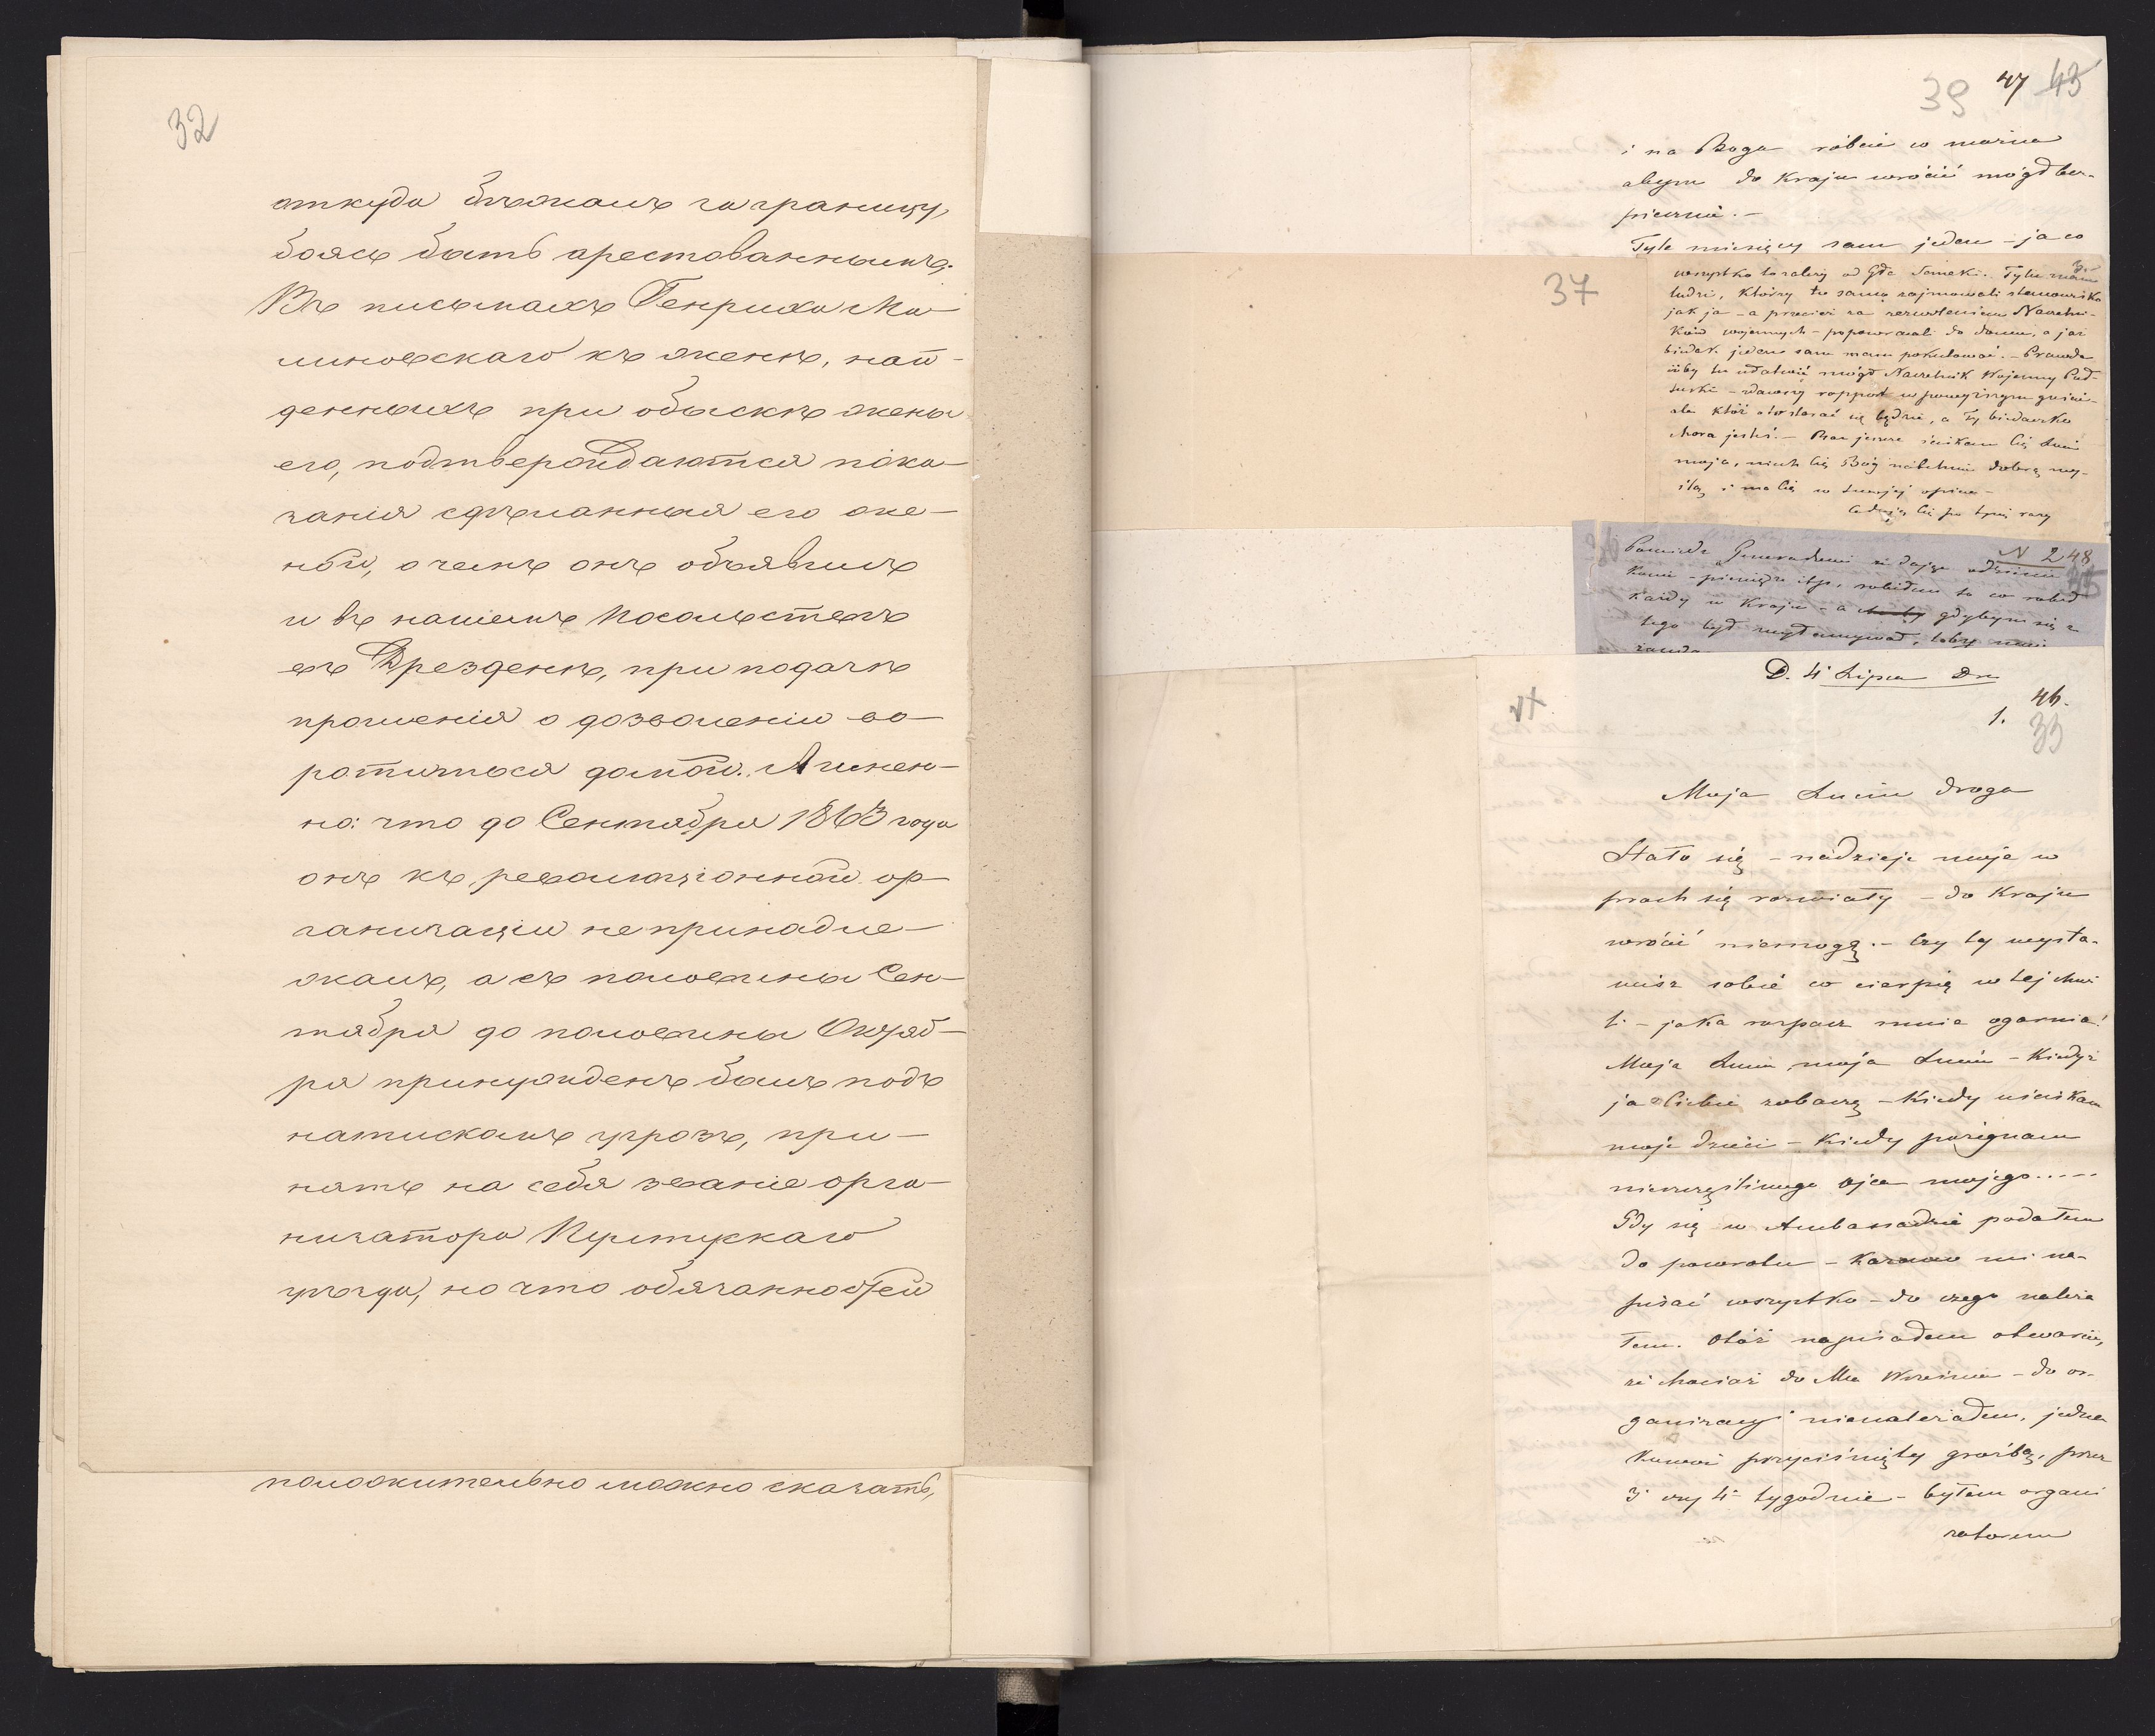 32
откуда бѣжалъ за границу,
боясь быть арестованнымъ.
Въ письмахъ Генриха Ма-
линовскаго къ женѣ, най-
денныхъ при обыскѣ жены
его, подтверждаются пока-
занія сдѣланныя его же-
ной, о чемъ онъ объявилъ
и въ нашемъ Посольствѣ
въ Дрезденѣ, при подачѣ
прошенія о дозволеніи во-
ротиться домой. А имен-
но: что до Сентября 1863 года
онъ къ революціонной ор-
ганизаціи не принадле-
жалъ, а съ половины Сен-
тября до половины Октяб-
ря принужденъ былъ подъ
натискомъ угрозъ, при-
нять на себя званіе орга-
низатора Пултускаго
уѣзда, но что обязанностей
положительно можно сказать,
39 47 43
i na Boga róbcie co można
abym do Kraju wrócić mógł bez-
piecznie. –
Tyle miesięcy sam jeden – ja co
37
3.
wszystko to zależy od Gła Semeki. Tylu
ludzi, którzy to samo zajmowali stanowisko
jak ja – a przecież za zezwoleniem Naczelni-
ków wojennych – popowracali do domu, a ja
biedak jeden sam mam pokutować. – Prawda
iżby to ułatwić mógł Naczelnik Wojenny Puł-
tuski – zdawszy rapport w powyższym
ale któż o to starać się będzie, a Ty biedaczko
chora jesteś. – Raz jeszcze ściskam Cię Luciu
moja, niech Cię Bóg natchnie dobrą my-
ślą i ma Cię w swojej opiece –
Całuję Cię po tysiąc razy
N 2 48
Powiedz Generałowi że dając
– pieniądze itp. robiłem to co robił
każdy w Kraju – a gdybym się z
tego był wyłamywał, toby mnie
D. 4 Lipca
46.
1. 33
Moja Luciu droga
Stało się – nadzieje moje w
proch się rozwiały – do Kraju
wrócić niemogę. – Czy ty wysta-
wisz sobie co cierpię w tej chwi
li – jaka rozpacz mnie ogarnia!
Moja Luciu, moja Luciu – Kiedyż
ja Ciebie zobaczę – Kiedy uściskam
moje dzieci – Kiedy pożegnam
nieszczęśliwego ojca mojego.....
Gdy się w Ambassadzie podałem
do powrotu – Kazano mi na-
pisać wszystko – do czego należa
łem. Otóż napisałem otwarcie,
że chociaż do Mca Września – do or-
ganizacyi nienależałem, jedna
kowoż przyciśnięty groźbą, przez
3 czy 4 tygodnie – byłem organi
zatorem